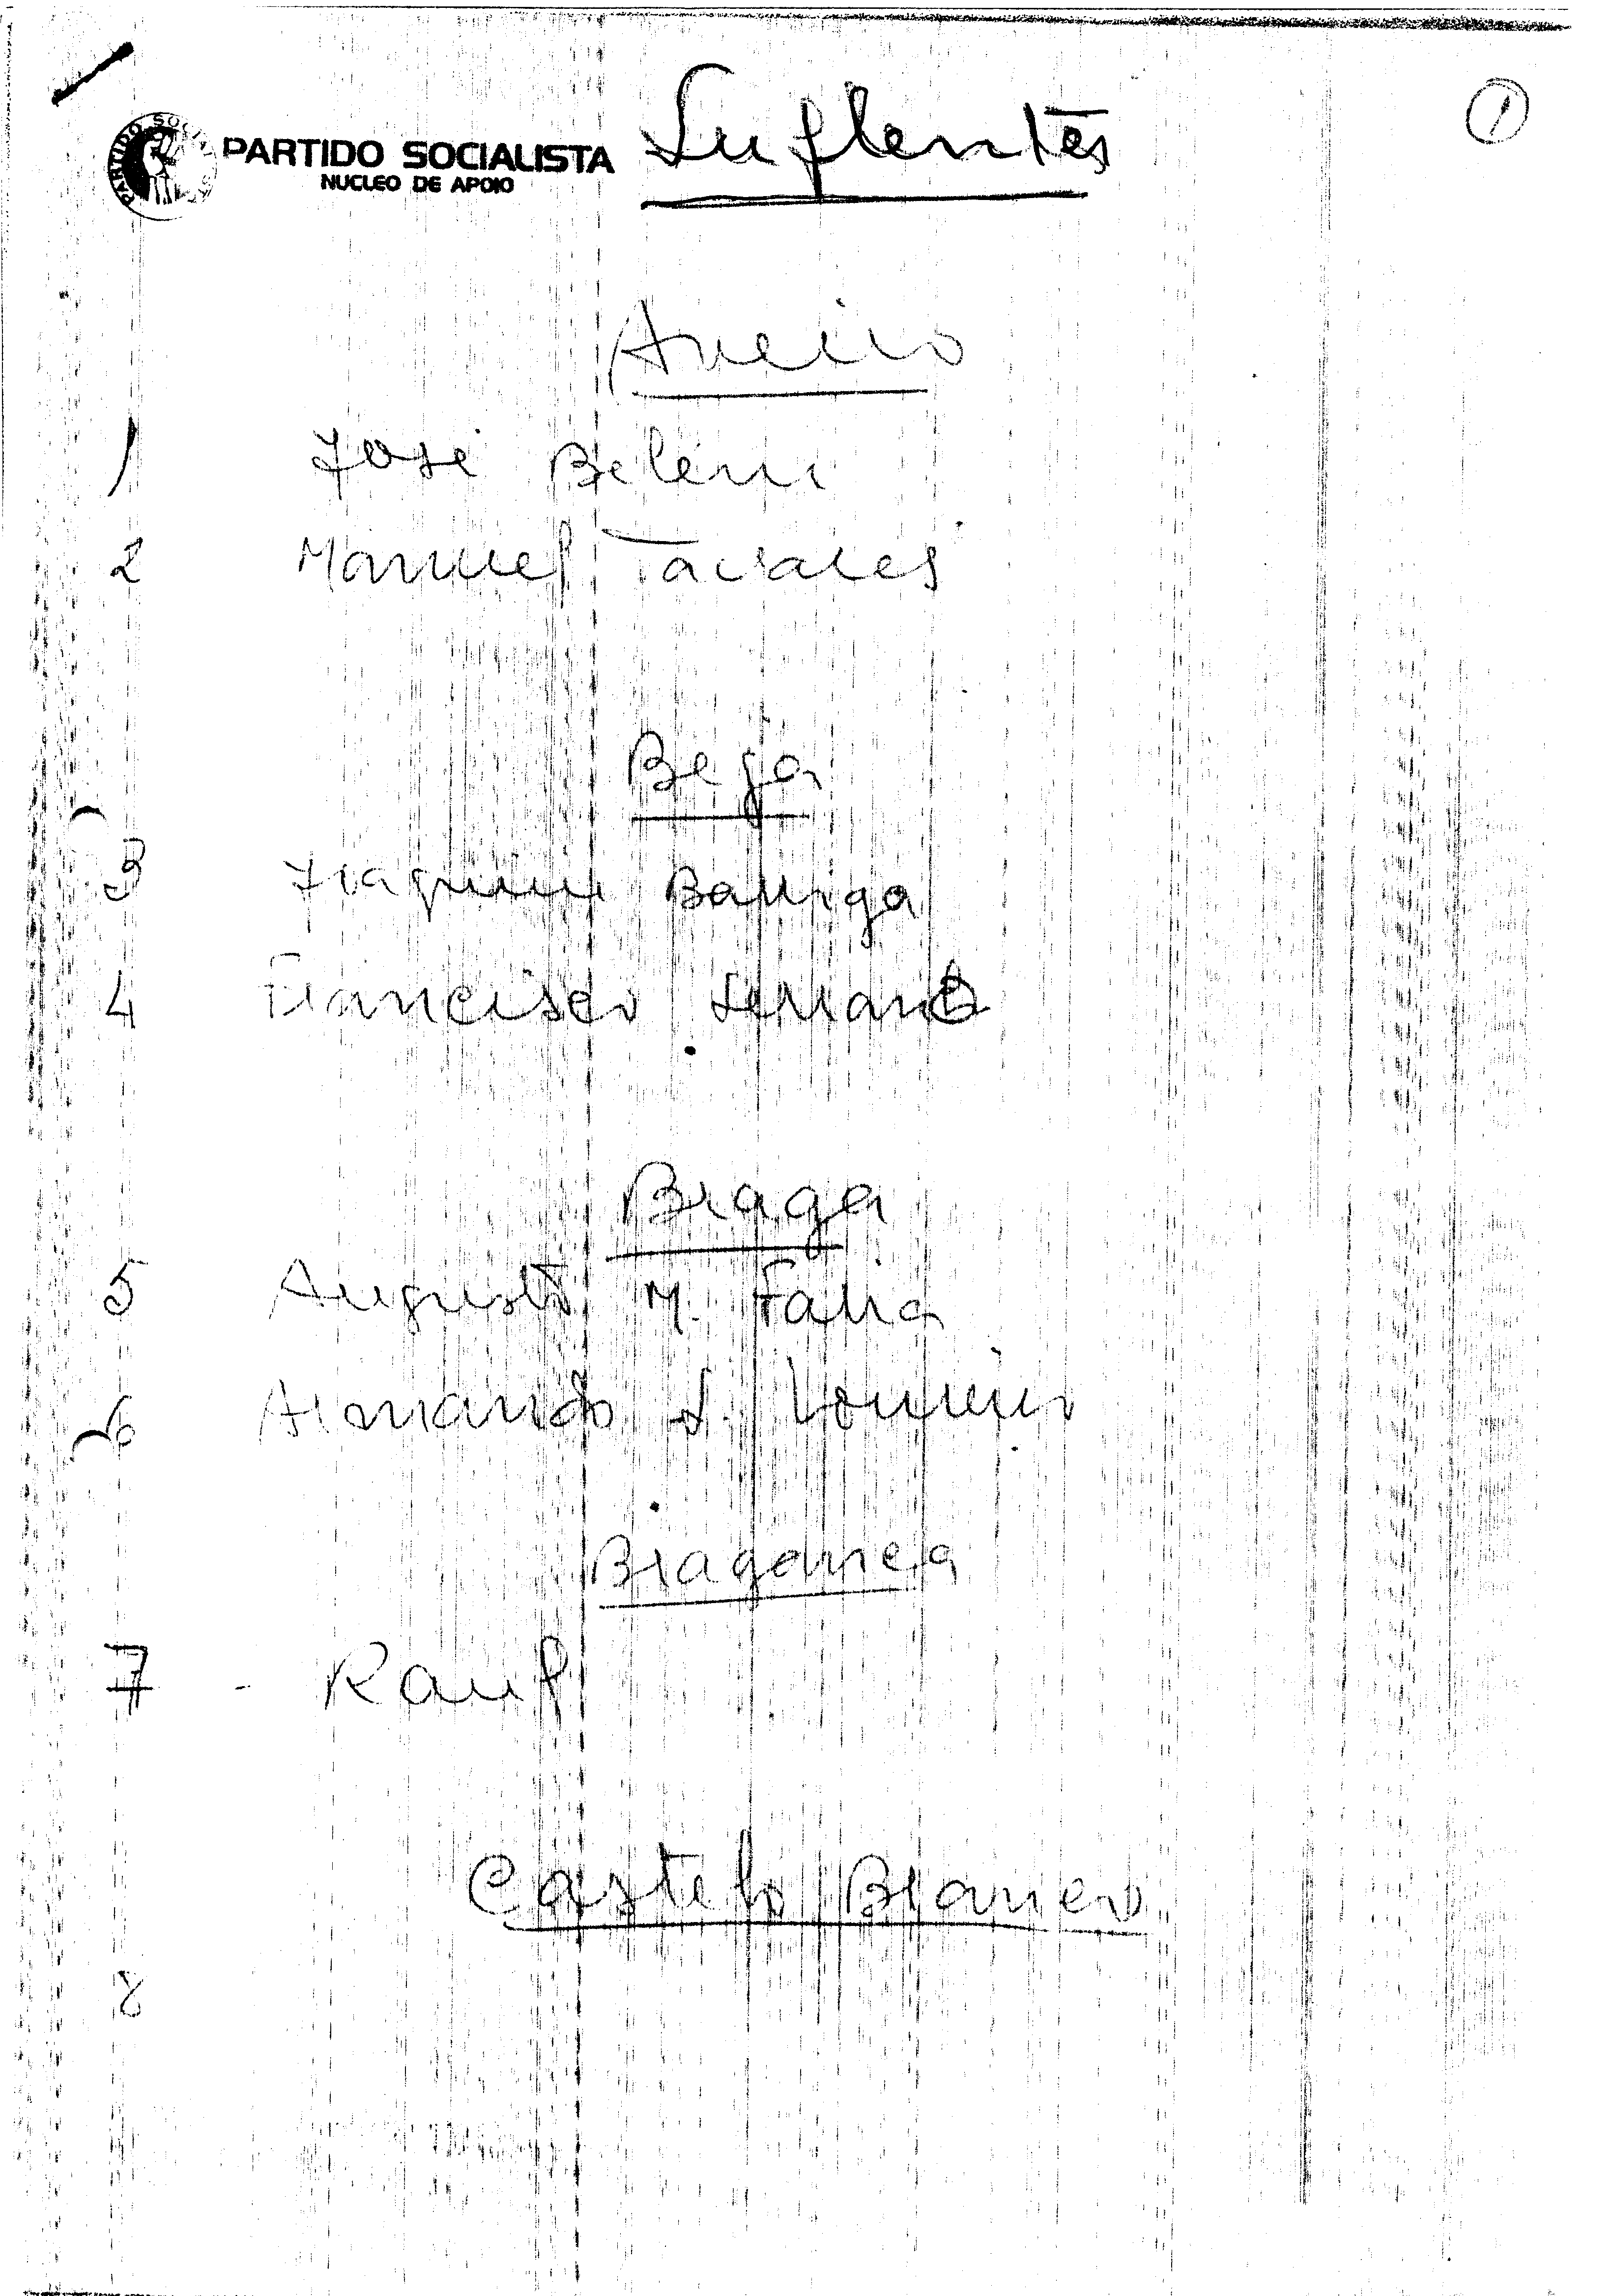 Suplentes
1
PARTIDO SOCIALISTA
NUCLEO DE APOIO
Aveiro
1 José Belém
2 Manuel Tavares
Beja
3 Joaquim Barriga
4 Francisco Serrano
Braga
5 Augusto M. Faria
6 Armando S. Loureiro
Bragança
7 - Raul
Castelo Branco
8